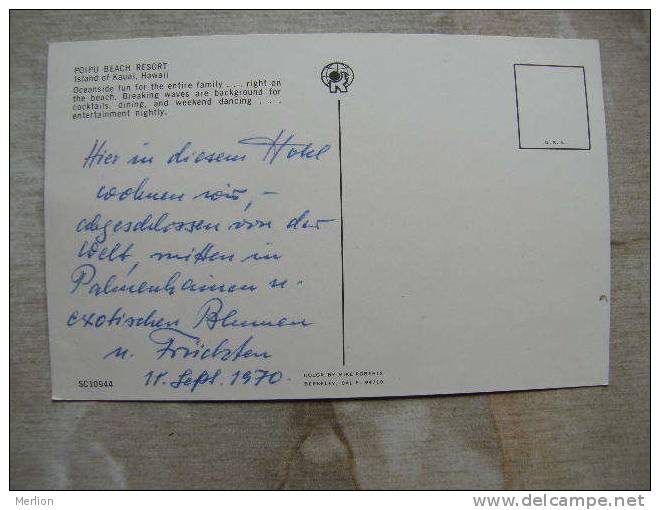 POIPU BEACH RESORT
Island of Kauai, Hawaii
Oceanside fun for the entire family . . . right on
the beach. Breaking waves are background for
cocktails, dining, and weekend dancing . . .
entertainment nightly.
Hier in diesem Hotel
wohnen wir, –
abgeschlossen von der
Welt, mitten in
Palmenhainen u.
exotischen Blumen
u. Früchten
Sept. 1970.
SC10944
COLOR BY MIKE ROBERTS
BERKELEY, CALIF. 94710
U. S. A.
Merlion
www.delcampe.net